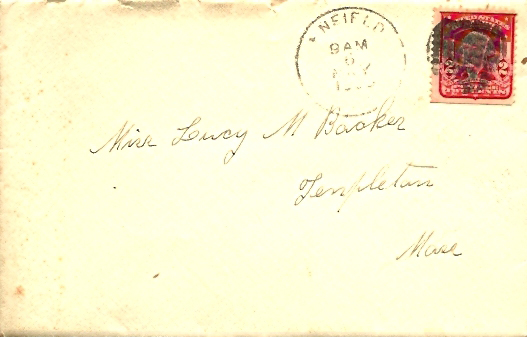 NFIELD
9AM
6
Miss Lucy M Backer
Templeton
Mass